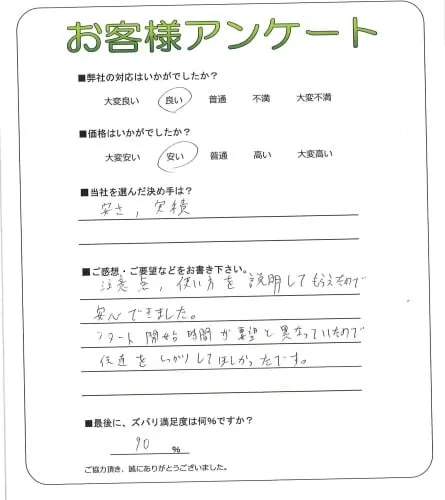 お客様アンケート
■弊社の対応はいかがでしたか?
大変良い 良い 普通 不満 大変不満
■価格はいかがでしたか?
大変安い 安い 普通 高い 大変高い
■当社を選んだ決め手は?
安さ，実績
■ご感想・ご要望などをお書き下さい。
注意点，使い方を説明してもらえたので
安心できました。
スタート開始時間が要望と異なっていたので
伝達をしっかりしてほしかったです。
■最後に、ズバリ満足度は何%ですか?
90 %
ご協力頂き、誠にありがとうございました。